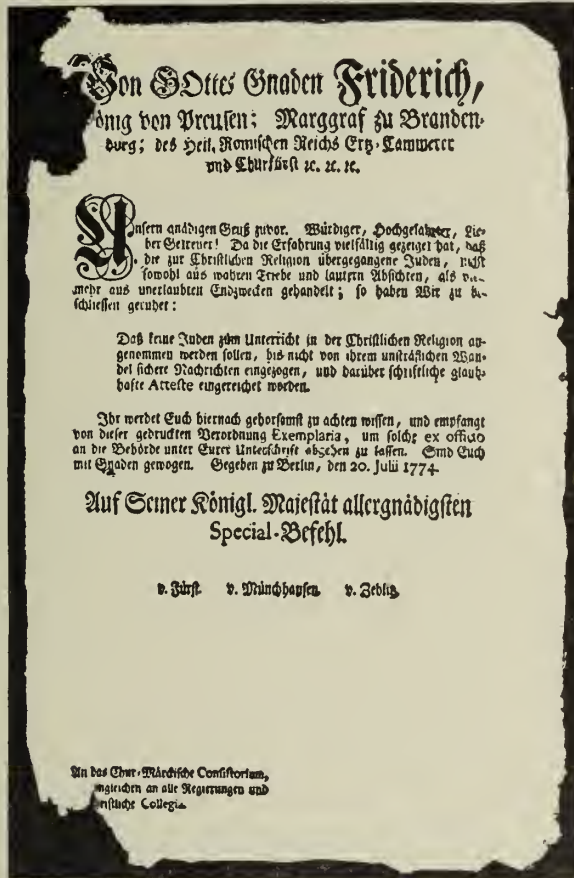 Von GOttes Gnaden Friderich,
önig von Preusen; Marggraf zu Branden-
burg; des Heil. Romischen Reichs Ertz-Cammerer
und Churfürst ꝛc. ꝛc. ꝛc.
Unsern gnädigen Gruß zuvor. Würdiger, Hochgelahrter, Lie-
ber Getreuer! Da die Erfahrung vielfältig gezeiget hat, daß
die zur Christlichen Religion übergegangene Juden, nicht
sowohl aus wahren Triebe und lautern Absichten, als viel-
mehr aus unerlaubten Endzwecken gehandelt; so haben Wir zu be-
schliessen geruhet:
Daß keine Juden zum Unterricht in der Christlichen Religion an-
genommen werden sollen, bis nicht von ihrem unsträflichen Wan-
del sichere Nachrichten eingezogen, und darüber schriftliche glaub-
hafte Atteste eingereichet worden.
Ihr werdet Euch hiernach gehorsamst zu achten wissen, und empfangt
von dieser gedruckten Verordnung Exemplaria, um solche ex officio
an die Behörde unter Eurer Unterschrift abgehen zu lassen. Sind Euch
mit Gnaden gewogen. Gegeben zu Berlin, den 20. Julii 1774.
Auf Seiner Königl. Majestät allergnädigsten
Special-Befehl.
v. Fürst. v. Münchhausen. v. Zedlitz.
An das Chur-Märckische Consistorium,
ingleichen an alle Regierungen und
ristliche Collegia.